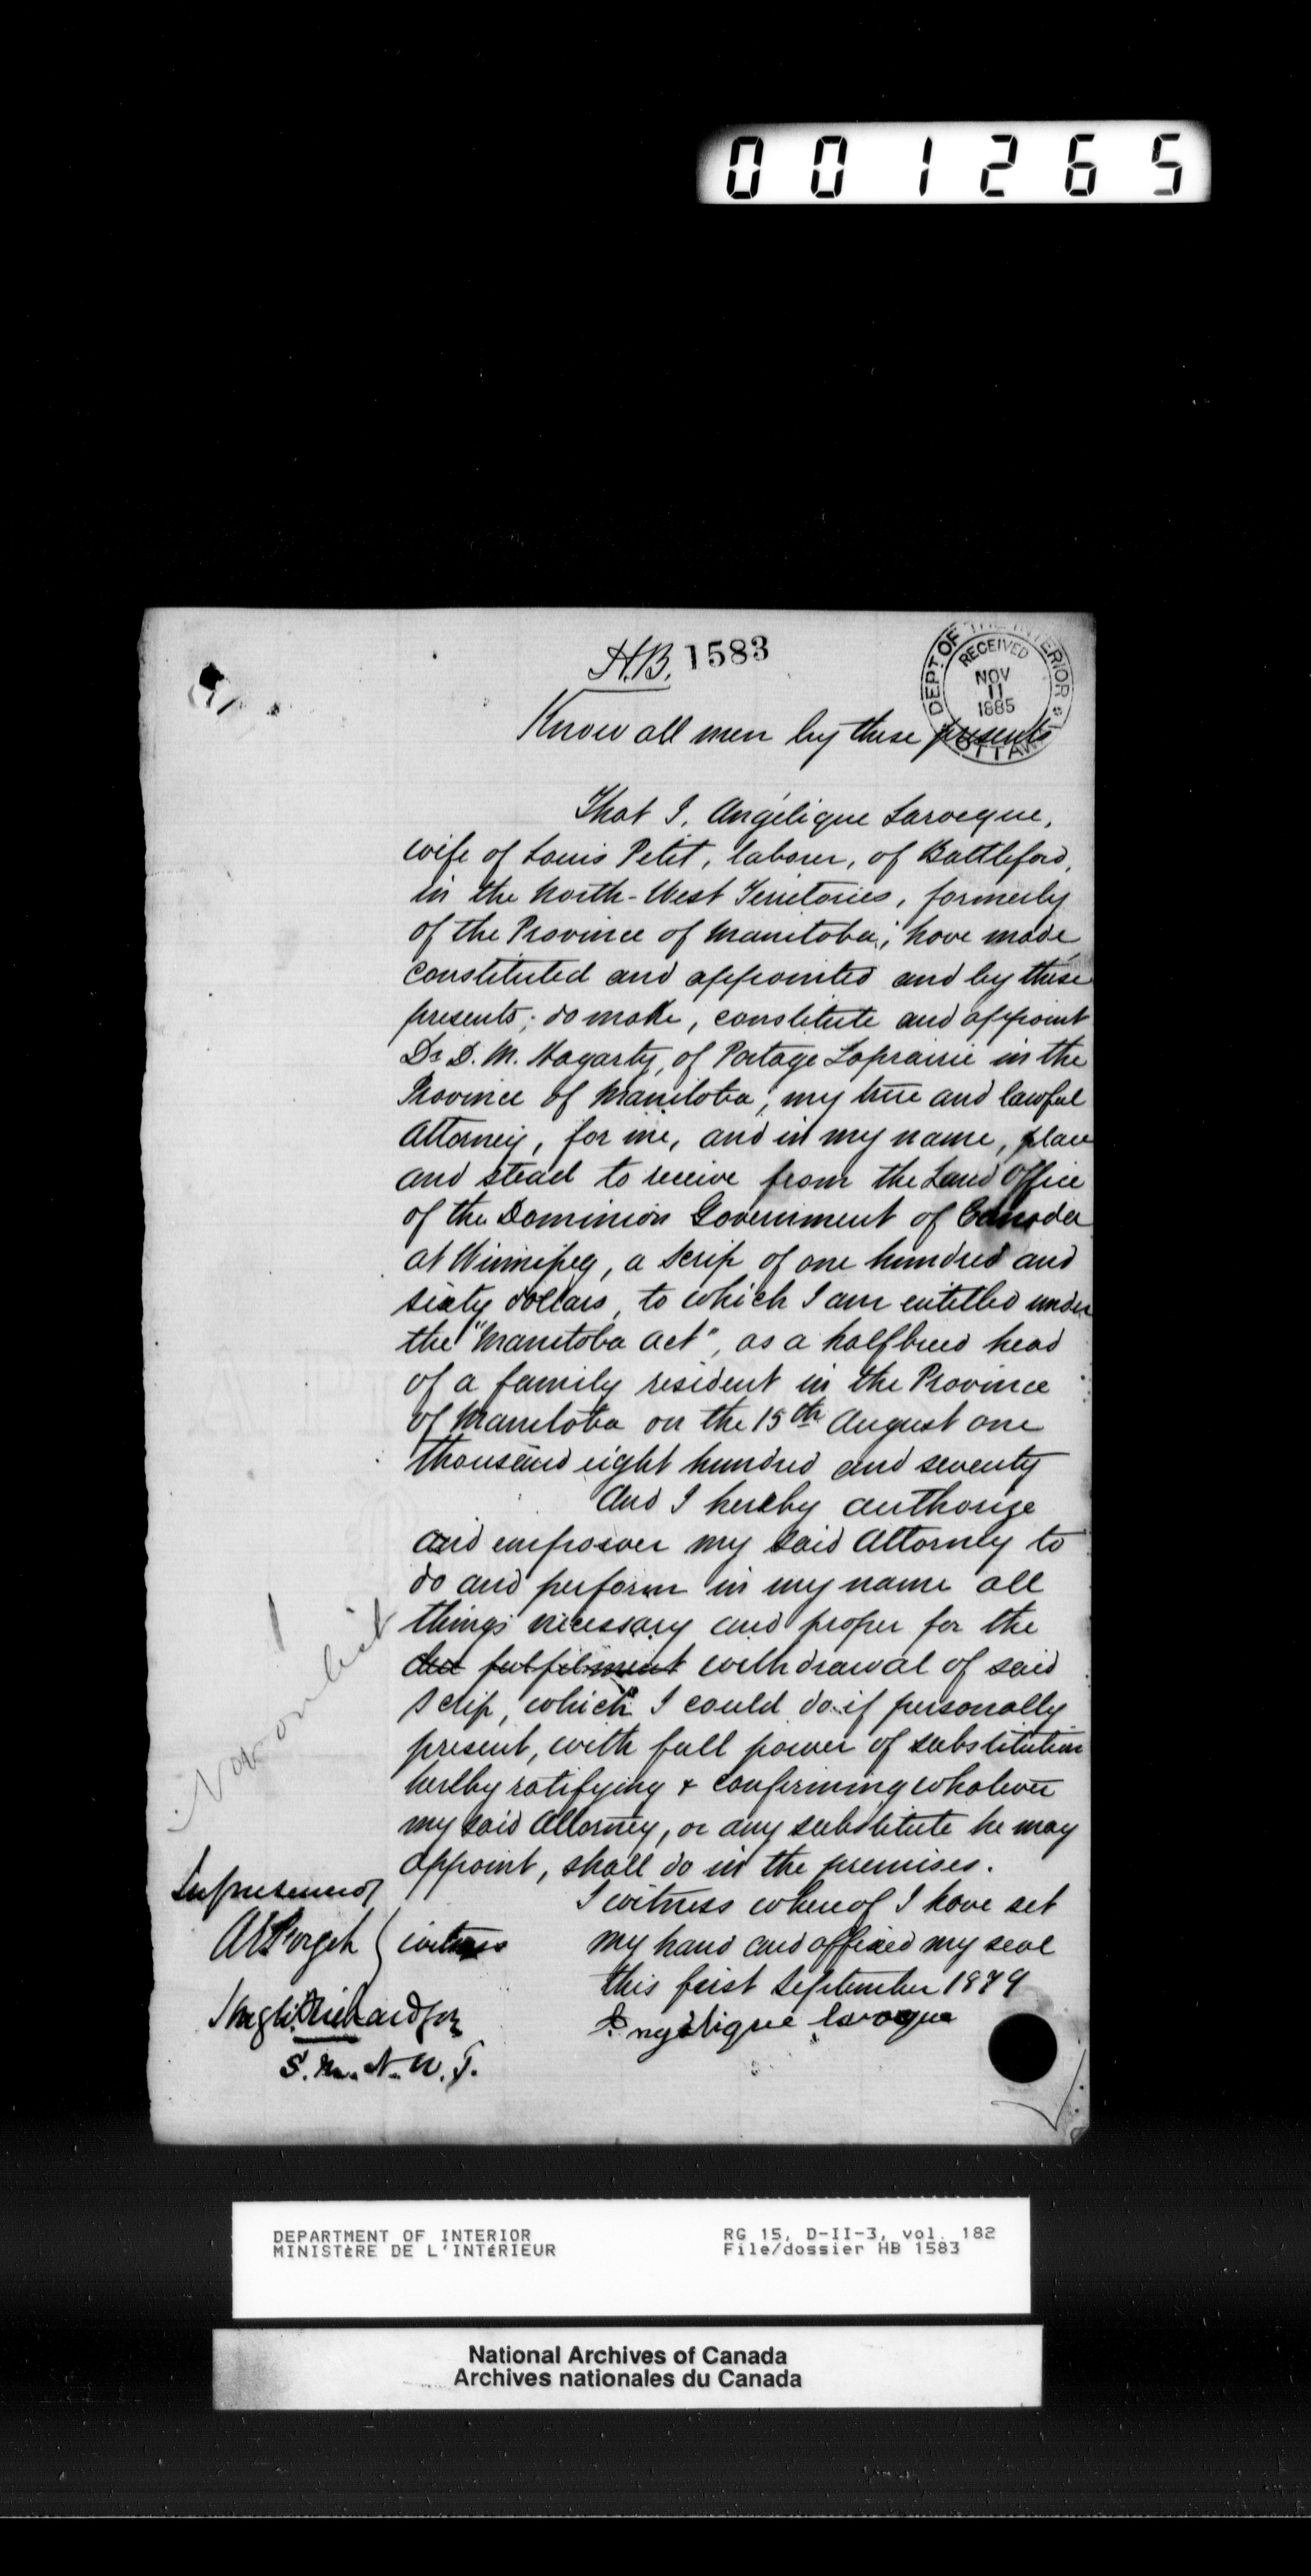 001265
H.B. 1583
DEPT. OF THE INTERIOR
RECEIVED
NOV
11
1885
OTTAWA
Know all men by these presents
That I, Angélique Larocque,
wife of Louis Petit, laborer, of Battleford,
in the North-West Territories, formerly
of the Province of Manitoba; have made
constituted and appointed and by these
presents; do make, constitute and appoint
Dr D. M. Hagarty, of Portage Laprairie in the
Province of Manitoba; my true and lawful
Attorney, for me, and in my name, place
and stead to receive from the Land Office
of the Dominion Government of Canada
at Winnipeg, a scrip of one hundred and
sixty dollars, to which I am entitled under
the "Manitoba Act", as a halfbreed head
of a family resident in the Province
of Manitoba on the 15th August one
thousand eight hundred and seventy
And I hereby authorize
and empower my said Attorney to
do and perform in my name all
things necessary and proper for the
due fulfilment withdrawal of said
scrip, which I could do if personally
present, with full power of substitution
hereby ratifying & confirming whatever
my said Attorney, or any substitute he may
appoint, shall do in the premises.
I witness whereof I have set
my hand and affixed my seal
this first September 1879
Angelique Larocque
In presence of
witness
Hugh Richardson
S. M. N. W. T.
DEPARTMENT OF INTERIOR
MINISTÈRE DE L'INTÉRIEUR
RG 15, D-II-3, vol. 182
File/dossier HB 1583
National Archives of Canada
Archives nationales du Canada